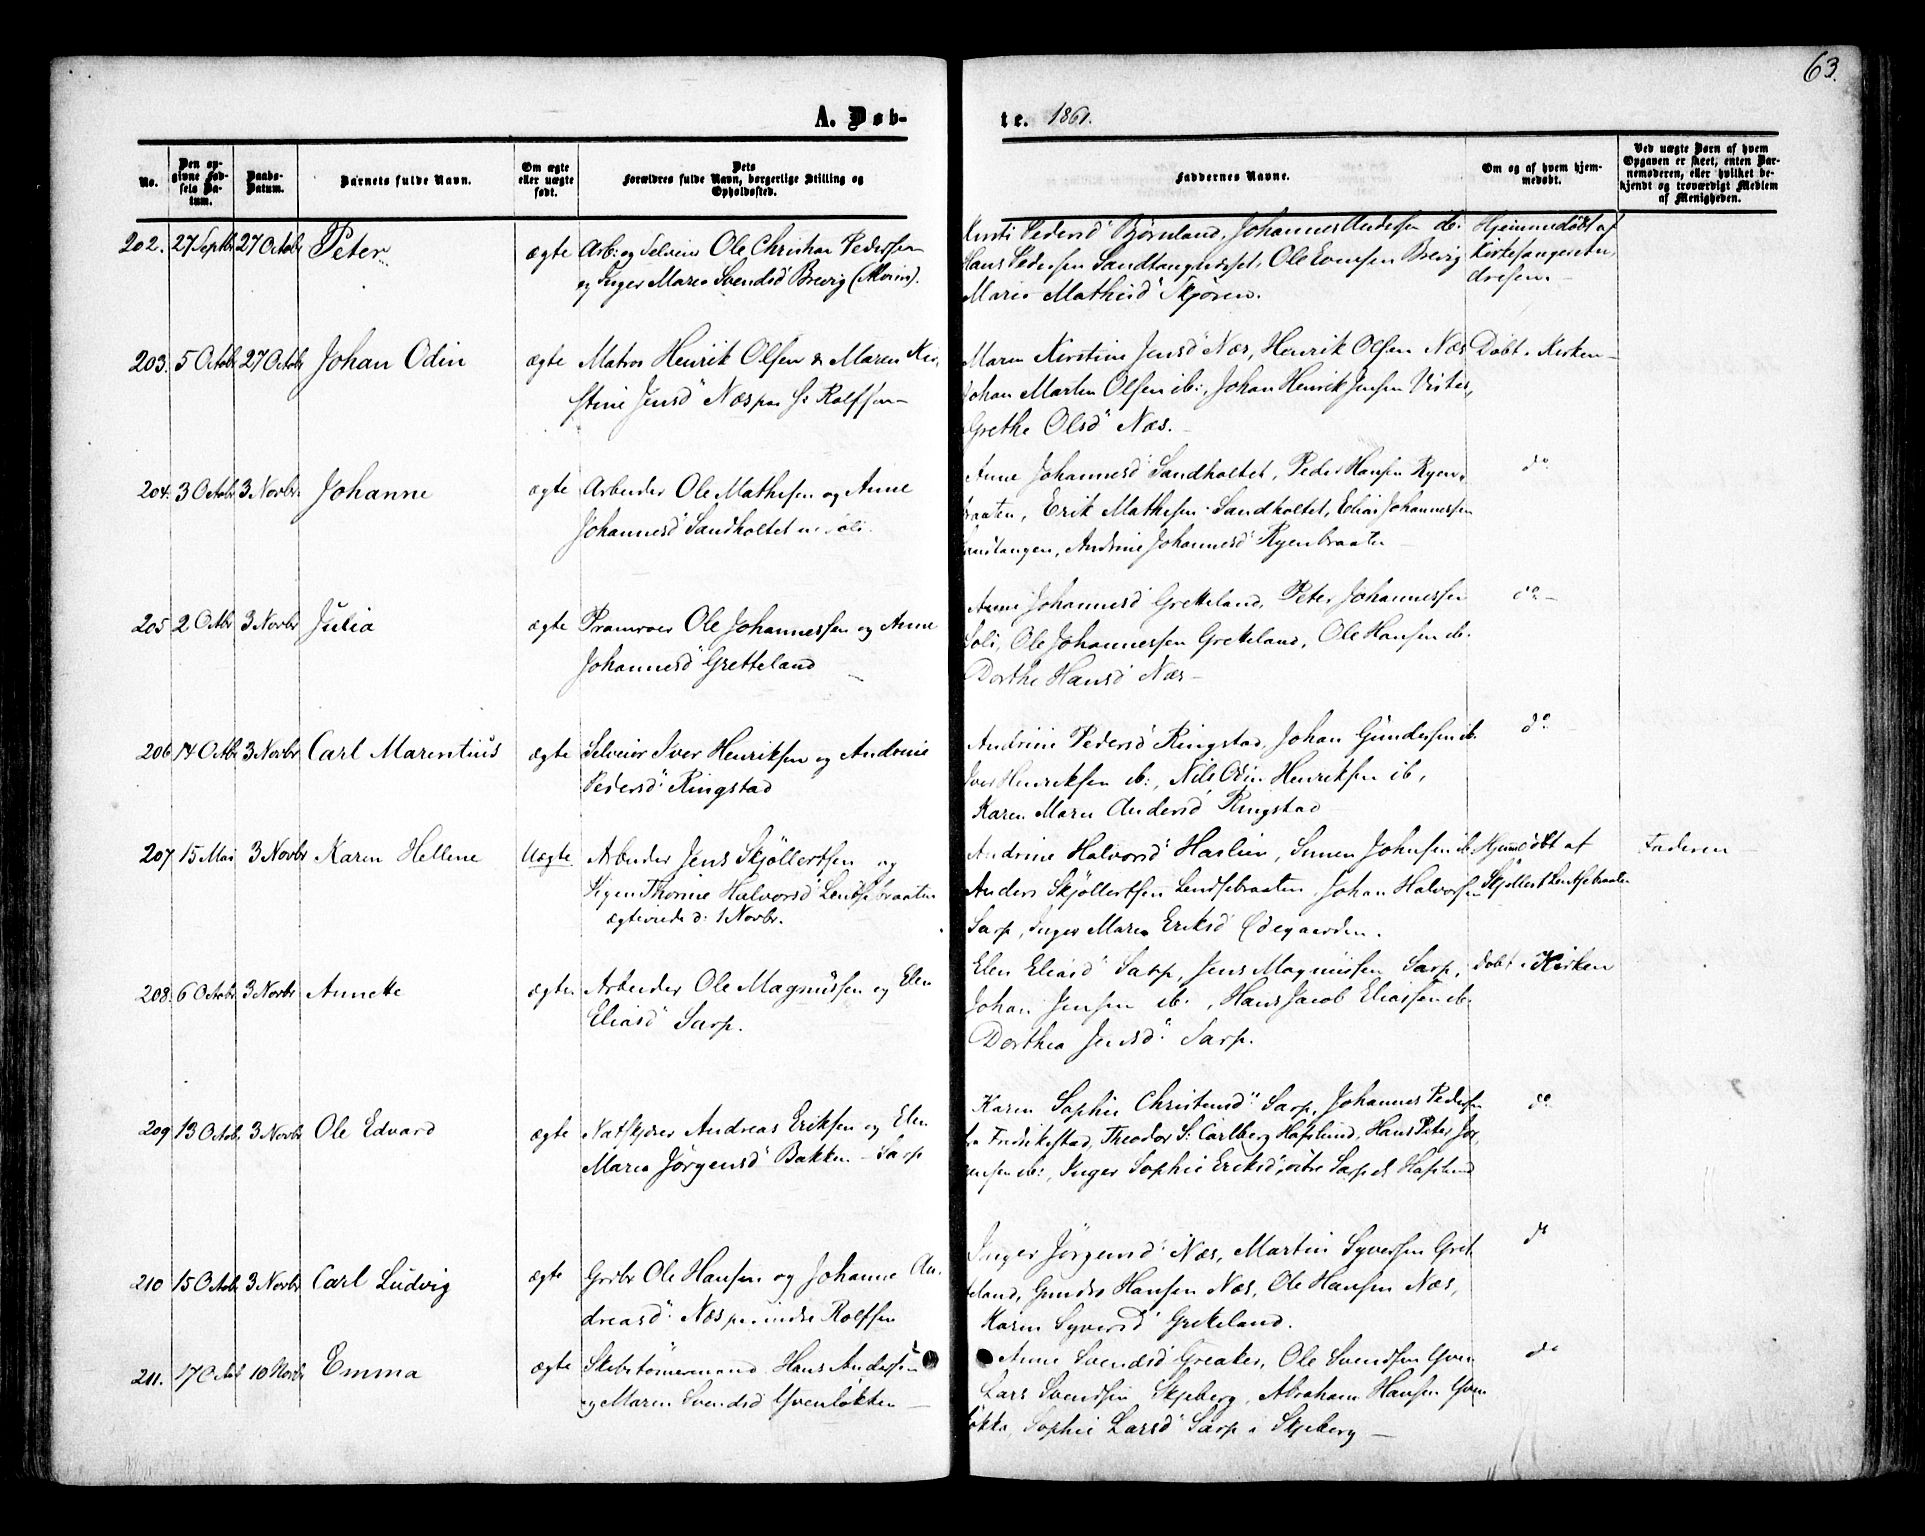 63.
A. Døb-
te. 1861.
No.
Den opgivne Fødsels Datum.
Daabs-Datum.
Barnets fulde Navn.
Om ægte eller uægte født.
Dets Forældres fulde Navn, borgerlige Stilling og Opholdssted.
Faddernes Navne.
Om og af hvem hjemmedøbt.
Ved uægte Børn af hvem Opgaven er skeet, enten Barnemoderen, eller hvilket bekjendt og troværdigt Medlem af Menigheden.
202. 27 Septbr 27 Octobr Peter ægte Arb: og Selveier Ole Christian Pederssen
og Inger Marie Svendsd Brevig
Pedersd Bjørnland, Johannes Andersen ib:
Hans Pedersen Ole Evensen Brevig
Marie Mathisd
Hjemmedøbt af
Kirkesanger
203. 5 Octobr 27 Octobr Johan Odin ægte Matros Henrik Olsen & Maren Kir-
stine Jensd Næs
Maren Kirstine Jensd Næs, Henrik Olsen Næs
Johan Martin Olsen ib:, Johan Henrik Jensen
Grethe Olsd Næs.
Døbt i Kirken
204. 3 Octobr 3 Novbr. Johanne ægte Arbeider Ole Mathisen og Anne
Johannesd Sandholtet u: Soli.
Anne Johannesd Sandholtet, Peder Hansen Ryen-
braaten, Erik Mathisen Sandholtet, Elias Johannessen
Johannesd Ryenbraaten
do
205 2 Octbr 3 Novbr Julia ægte Pramroer Ole Johannessen og Anne
Johannesd Gretteland
Anne Johannesd Gretteland, Peter Johannessen
Soli, Ole Johannessen Gretteland, Ole Hansen ib.
Dorthe Hansd Næs
do
206 14 Octbr 3 Novbr Carl Marentius ægte Selveier Iver Henriksen og Andrine
Pedersd Ringstad
Andrine Pedersd Ringstad, Johan Gundersen ib.
Iver Henriksen ib:, Nils Odin Henriksen ib,
Karen Marie Andersd Ringstad
do
207 15 Mai 3 Novbr Karen Hellene Uægte Arbeider Jens Skjøllertsen og
Thorine Halvorsd Lentsebraaten
ægteviede d: 1 Novbr.
Andrine Halvorsd Haslien, Simen Johnsen ib:
Anders Skjøllertsen Lendsebraaten, Johan Halvorsen
Sarp, Inger Marie Eriksd Ødegaarden.
Hjemmedøbt af
Skjøllert Lentsebraaten
Faderen
208. 6 Octobr 3 Novbr Annette ægte Arbeider Ole Magnussen og Elen
Eliasd Sarp.
Elen Eliasd Sarp, Jens Magnussen Sarp,
Johan Jensen ib:, Hans Jacob Eliassen ib
Dorthea Jensd Sarp.
Døbt i Kirken
209 13 Octob. 3 Novbr. Ole Edvard ægte Andreas Eriksen og Elen
Marie Jørgensd Bakken Sarp
Karen Sophie Sarp, Johannes Pedersen
Fredrikstad, Theodor S: Carlberg Hafslund, Hans Peter Jør-
gensen ib:, Inger Sophie Eriksd, Hafslund
do
210 15 Octobr 3 Novbr Carl Ludvig ægte Grdbr Ole Hansen og Johanne An-
dreasd Næs
Inger Jørgensd Næs, Martin Syversen Gret-
teland, Gunder Hansen Næs, Ole Hansen Næs,
Karen Syversd Gretteland.
do
211. 17 Octobr 10 Novbr Emma ægte Skibstømermand Hans Andersen
og Maren Svendsd Yvenløkken
Anne Svendsd Greaker, Ole Svendsen Yven
Lars Svendsen Skjeberg, Abraham Hansen Yven
løkka, Sophie Larsd Sarp i Skjeberg
do